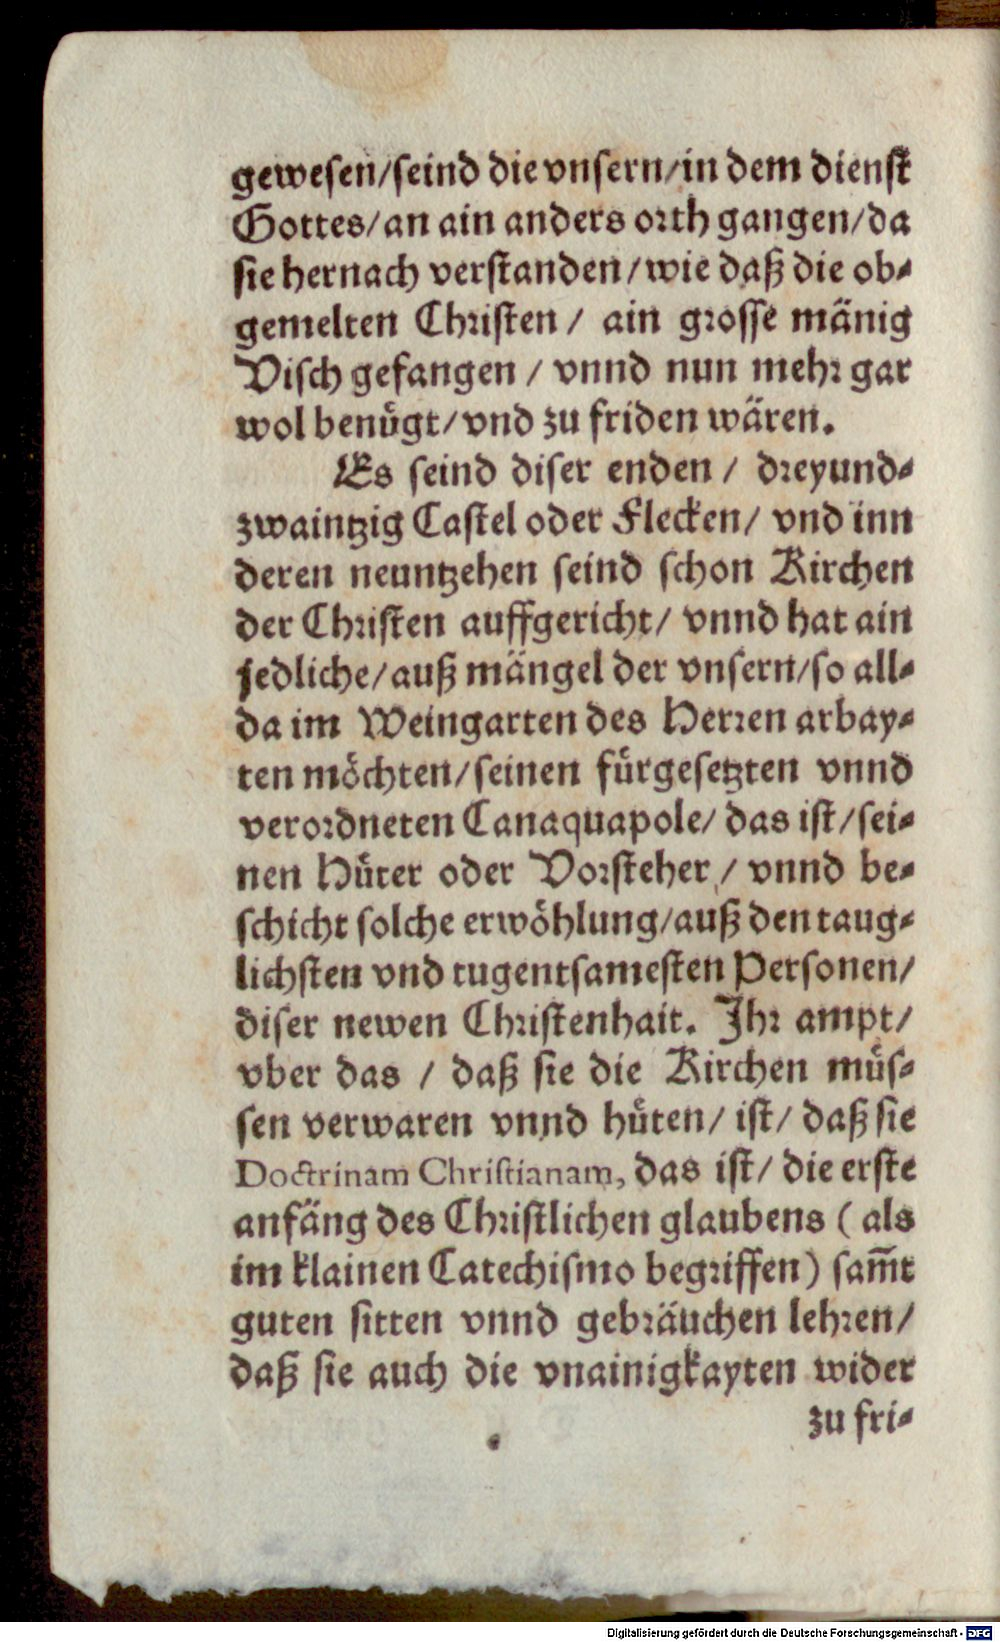 gewesen/seind die vnsern/in dem dienst
Gottes/an ain anders orth gangen/da
sie hernach verstanden/wie daß die ob-
gemelten Christen/ ain grosse mänig
Visch gefangen / vnnd nun mehr gar
wol benůgt/vnd zu friden wären.
Es seind diser enden / dreyund-
zwaintzig Castel oder Flecken/ vnd inn
deren neuntzehen seind schon Kirchen
der Christen auffgericht/ vnnd hat ain
jedliche/auß mängel der vnsern/so all-
da im Weingarten des Herren arbay-
ten möchten/seinen fürgesetzten vnnd
verordneten Canaquapole/ das ist/sei-
nen Hüter oder Vorsteher / vnnd be-
schicht solche erwöhlung/auß den taug-
lichsten vnd tugentsamesten Personen/
diser newen Christenhait. Ihr ampt/
vber das / daß sie die Kirchen müs-
sen verwaren vnnd hüten/ ist/ daß sie
Doctrinam Christianam, das ist/ die erste
anfäng des Christlichen glaubens ( als
im klainen Catechismo begriffen) sam̃t
guten sitten vnnd gebräuchen lehren/
daß sie auch die vnainigkayten wider
zu fri-
Digitalisierung gefördert durch die Deutsche Forschungsgemeinschaft - DFG